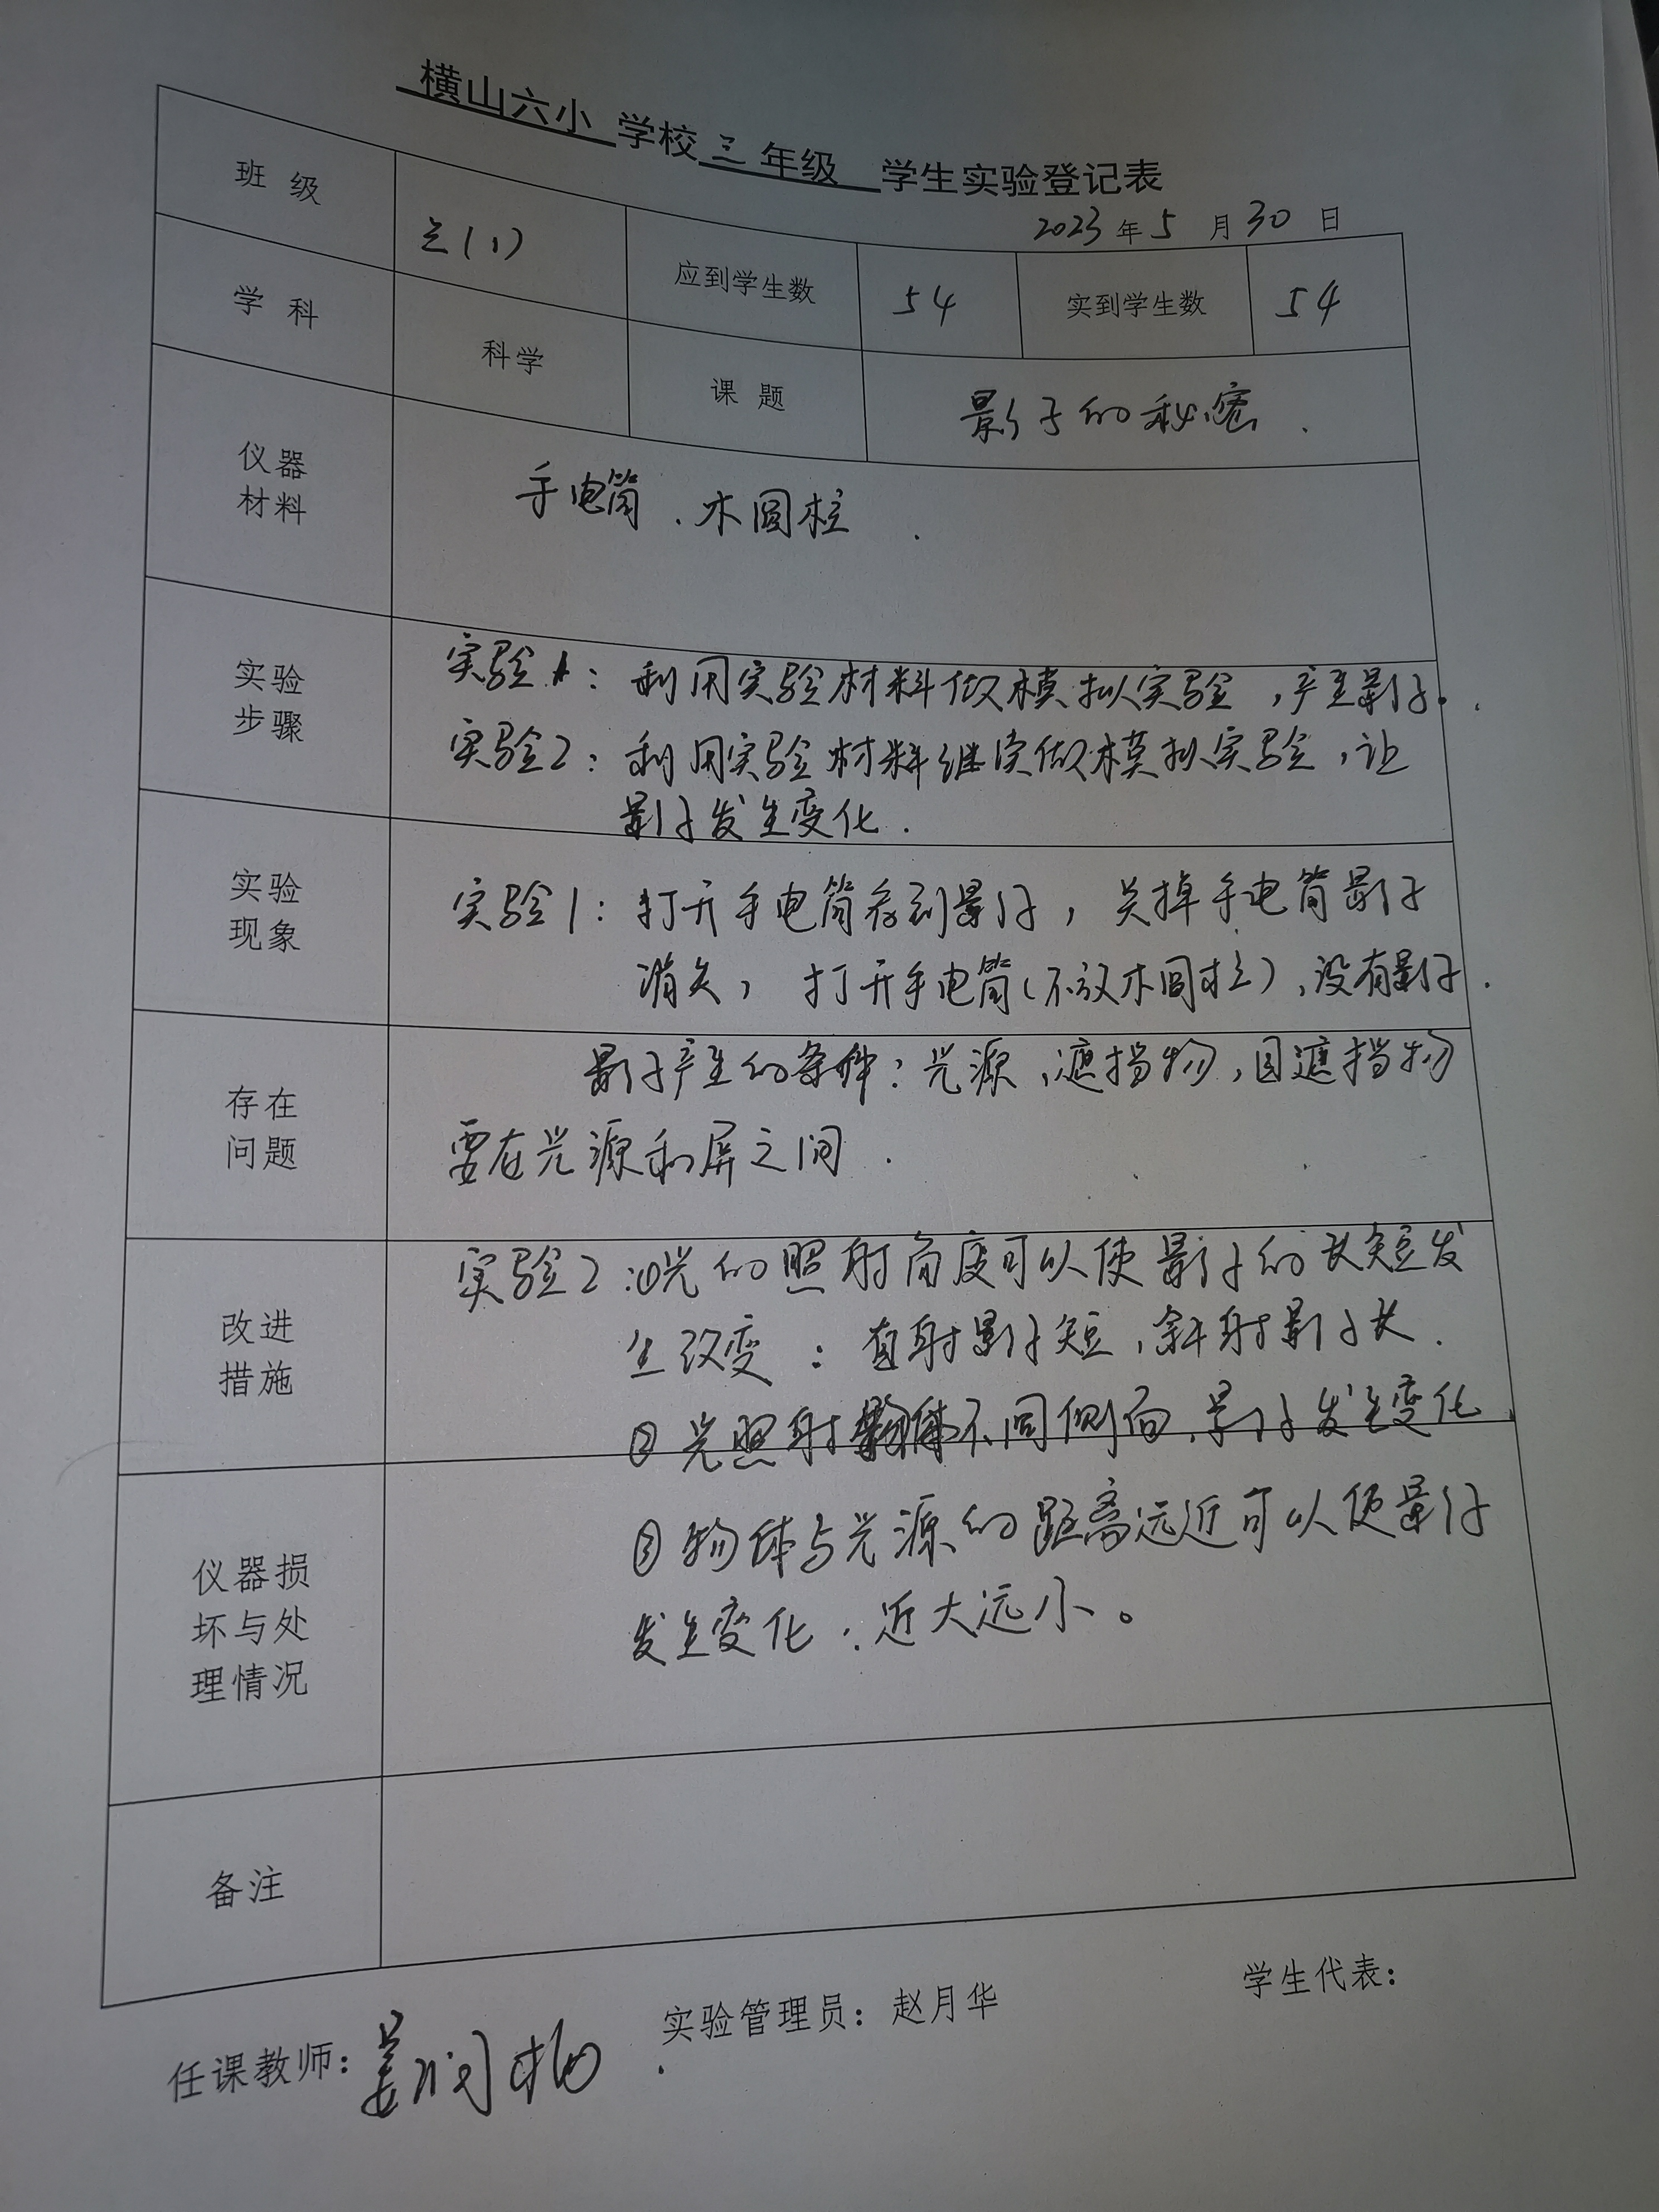 横山六小 学校 三 年级 学生实验登记表
2023 年 5 月 30 日
班 级 三(1) 应到学生数 54 实到学生数 54
学 科 科学 课 题 影子的秘密.
仪器
材料
手电筒、木圆柱.
实验
步骤
实验1: 利用实验材料做模拟实验,产生影子。
实验2: 利用实验材料继续做模拟实验,让
影子发生变化.
实验
现象
实验1: 打开手电筒看到影子, 关掉手电筒影子
消失, 打开手电筒(不放木圆柱),没有影子.
存在
问题
影子产生的条件: 光源、遮挡物,且遮挡物
要在光源和屏之间.
改进
措施
实验2:①光的照射角度可以使影子的长短发
生改变: 直射影子短,斜射影子长.
②光照射物体不同侧面,影子发生变化.
仪器损
坏与处
理情况
③物体与光源的距离远近可以使影子
发生变化,近大远小。
备注
任课教师: 姜
实验管理员: 赵月华
学生代表: